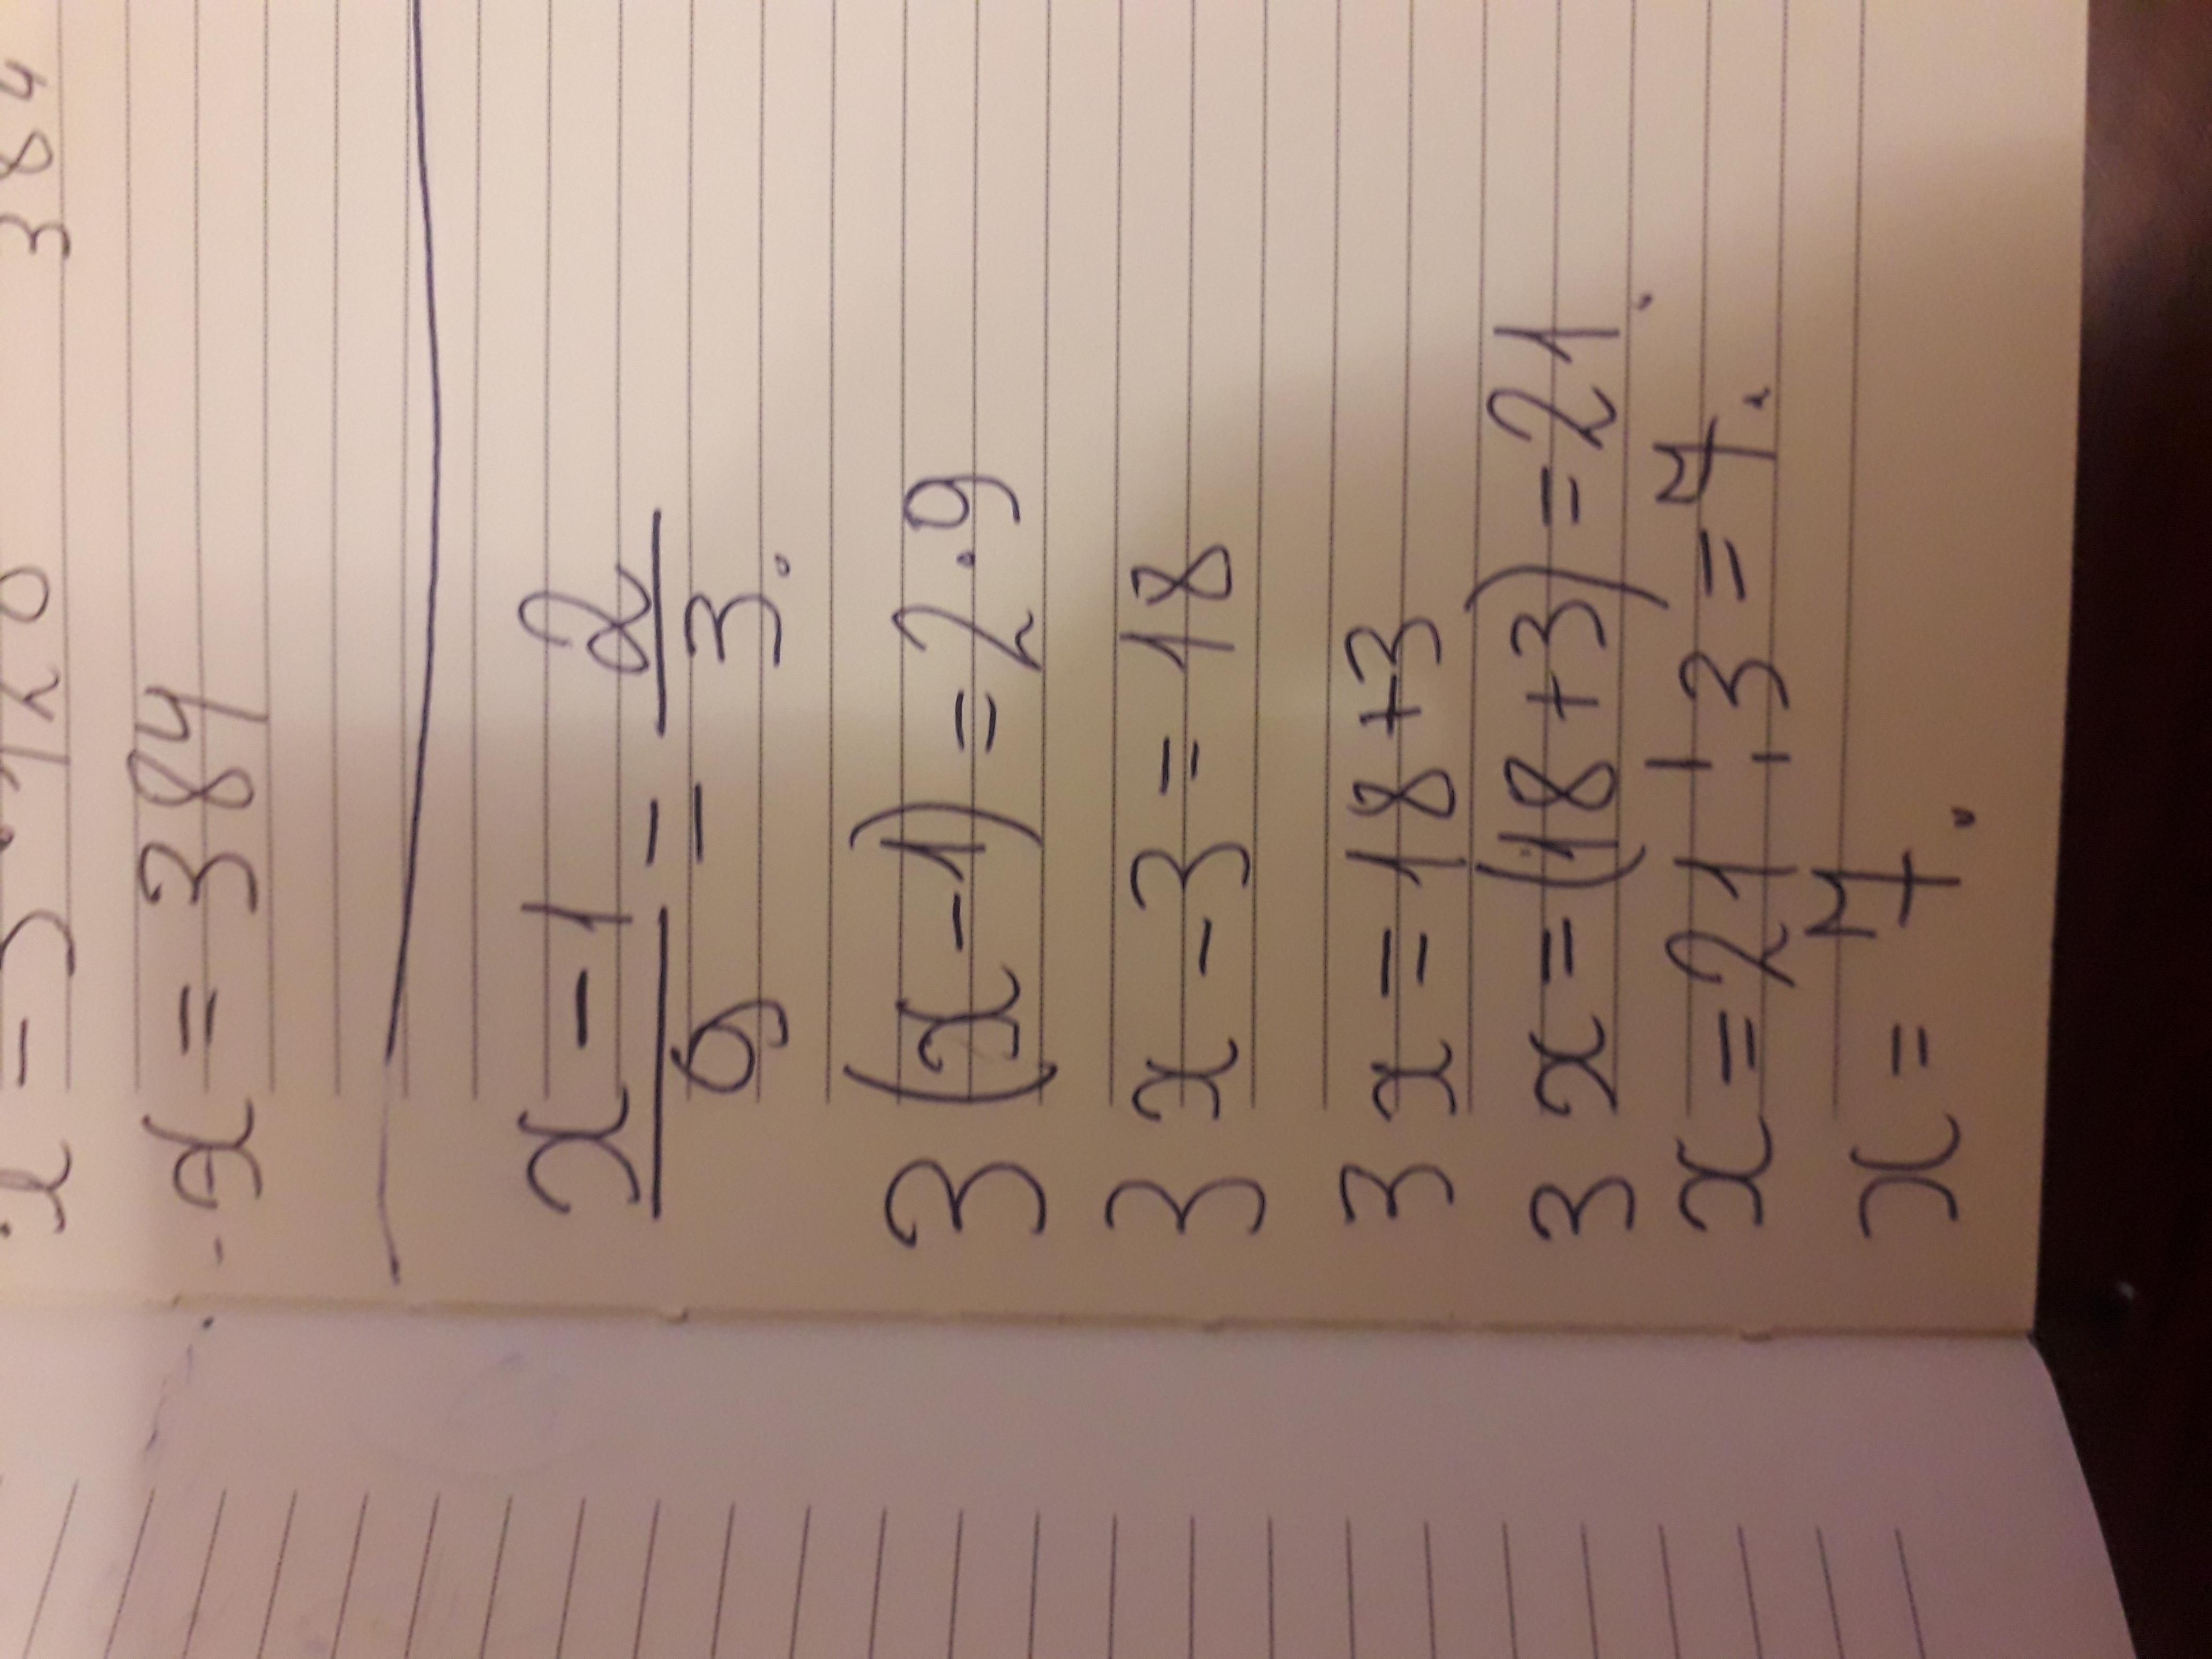 384
x = 384
x - 1 = 2
9 3.
3 (x - 1) = 2 . 9
3 x - 3 = 18
3 x = 18 + 3
3 x = (18 + 3) = 21.
x = 21 ÷ 3 = 7.
x = 7.